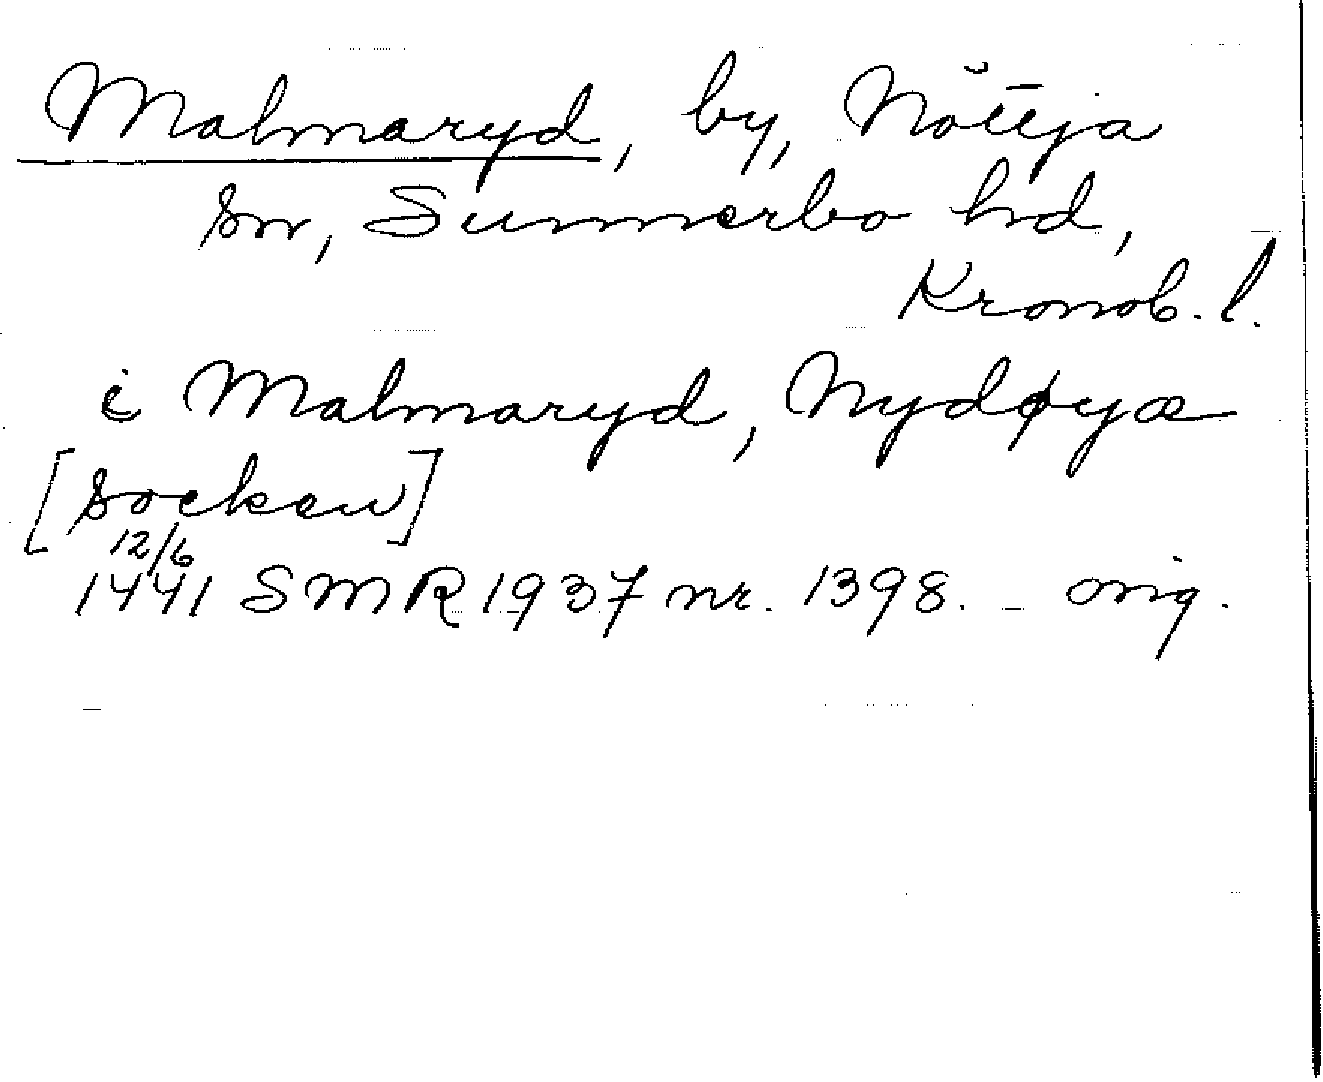 Malmaryd, by, Nöttja
sn, Sunnerbo hd,
Kronob. l.
i Malmaryd, Nydøyæ
[socken]
12/6
1441 SMR 1937 nr. 1398. – orig.